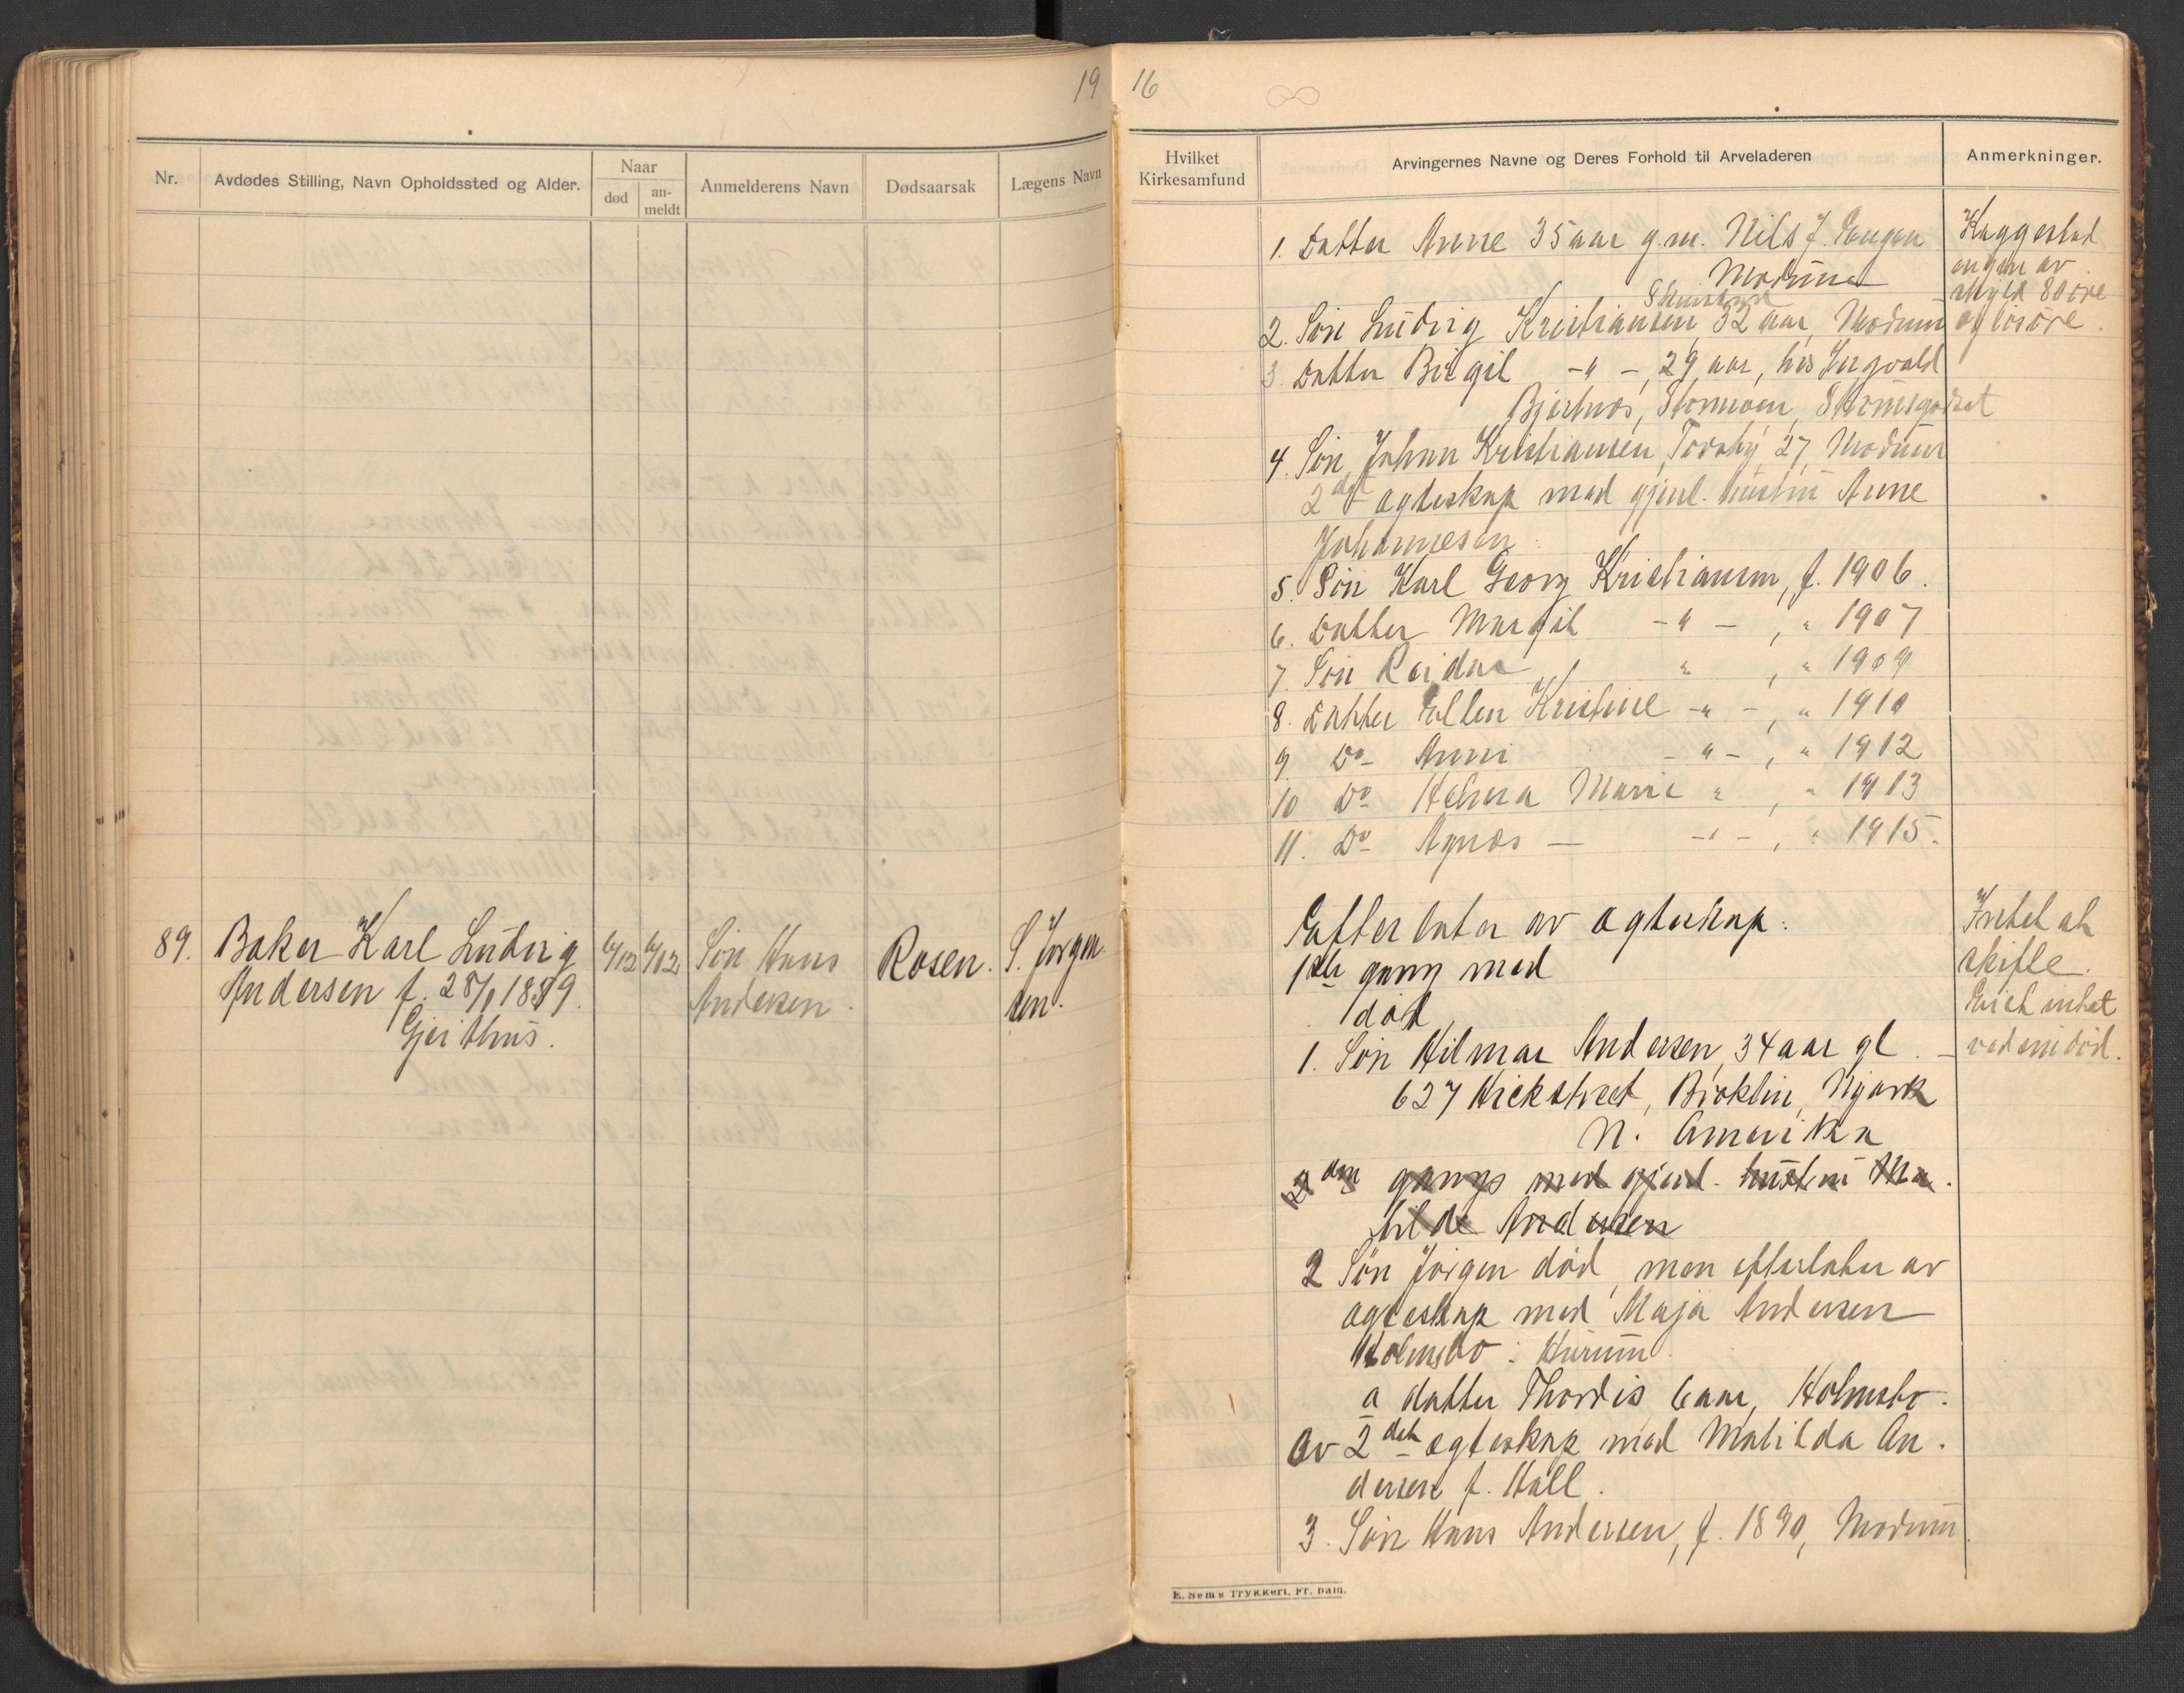 19
Nr.
Avdødes Stilling, Navn Opholdssted og Alder.
Naar
død
an-
meldt
Anmelderens Navn
Dødsaarsak
Lægens Navn
89.
Baker Karl Ludvig
Andersen f. 28/1 1859.
Gjeithus.
6/12
6/12
Søn Hans
Andersen.
Rosen.
S. Jørgen
sen.
16
Hvilket
Kirkesamfund
Arvingernes Navne og Deres Forhold til Arveladeren
Anmerkninger.
1. Datter Anne 35 aar g.m. Nils J.
Modum
2. Søn Ludvig Kristiansen 32 aar, Modum
3. Datter Birgit -"-, 29 aar, hos Ingvald
Bjertnæs, Strømsgodset
4. Søn Johan Kristiansen, 27, Modum
2det egteskap med gjenl. hustru Anne
Johannesen
5. Søn Karl Georg Kristiansen, f. 1906.
6. Datter Margit -"-, " 1907
7. Søn Reidar " , " 1909
8. Datter Ellen Kristine -"-, " 1910
9 Do Anni -"-, " 1912
10 Do Helma Marie " , " 1913
11. Do Agnes — -"-, " 1915.
av
skyld 80 øre
øre.
Efterlater av egteskap:
1ste gang med
død
1. Søn Hilmar Andersen, 34 aar gl. —
627 Hickstreet, Broklin, Njork
N. Amerika
2den gangs med gjenl. hustru Ma.
tilde Andersen
2 Søn Jørgen død, men efterlater av
egteskap med Maja Andersen
Holmsbo i Hurum.
a datter Thordis 6 aar, Holmsbo.
Av 2det egteskap med Matilda An.
dersen f. Hall.
3. Søn Hans Andersen, f. 1890, Modum.
Intet at
skifte.
Eiet intet
ved sin død.
E. Sem's Trykkeri, Fr. hald.